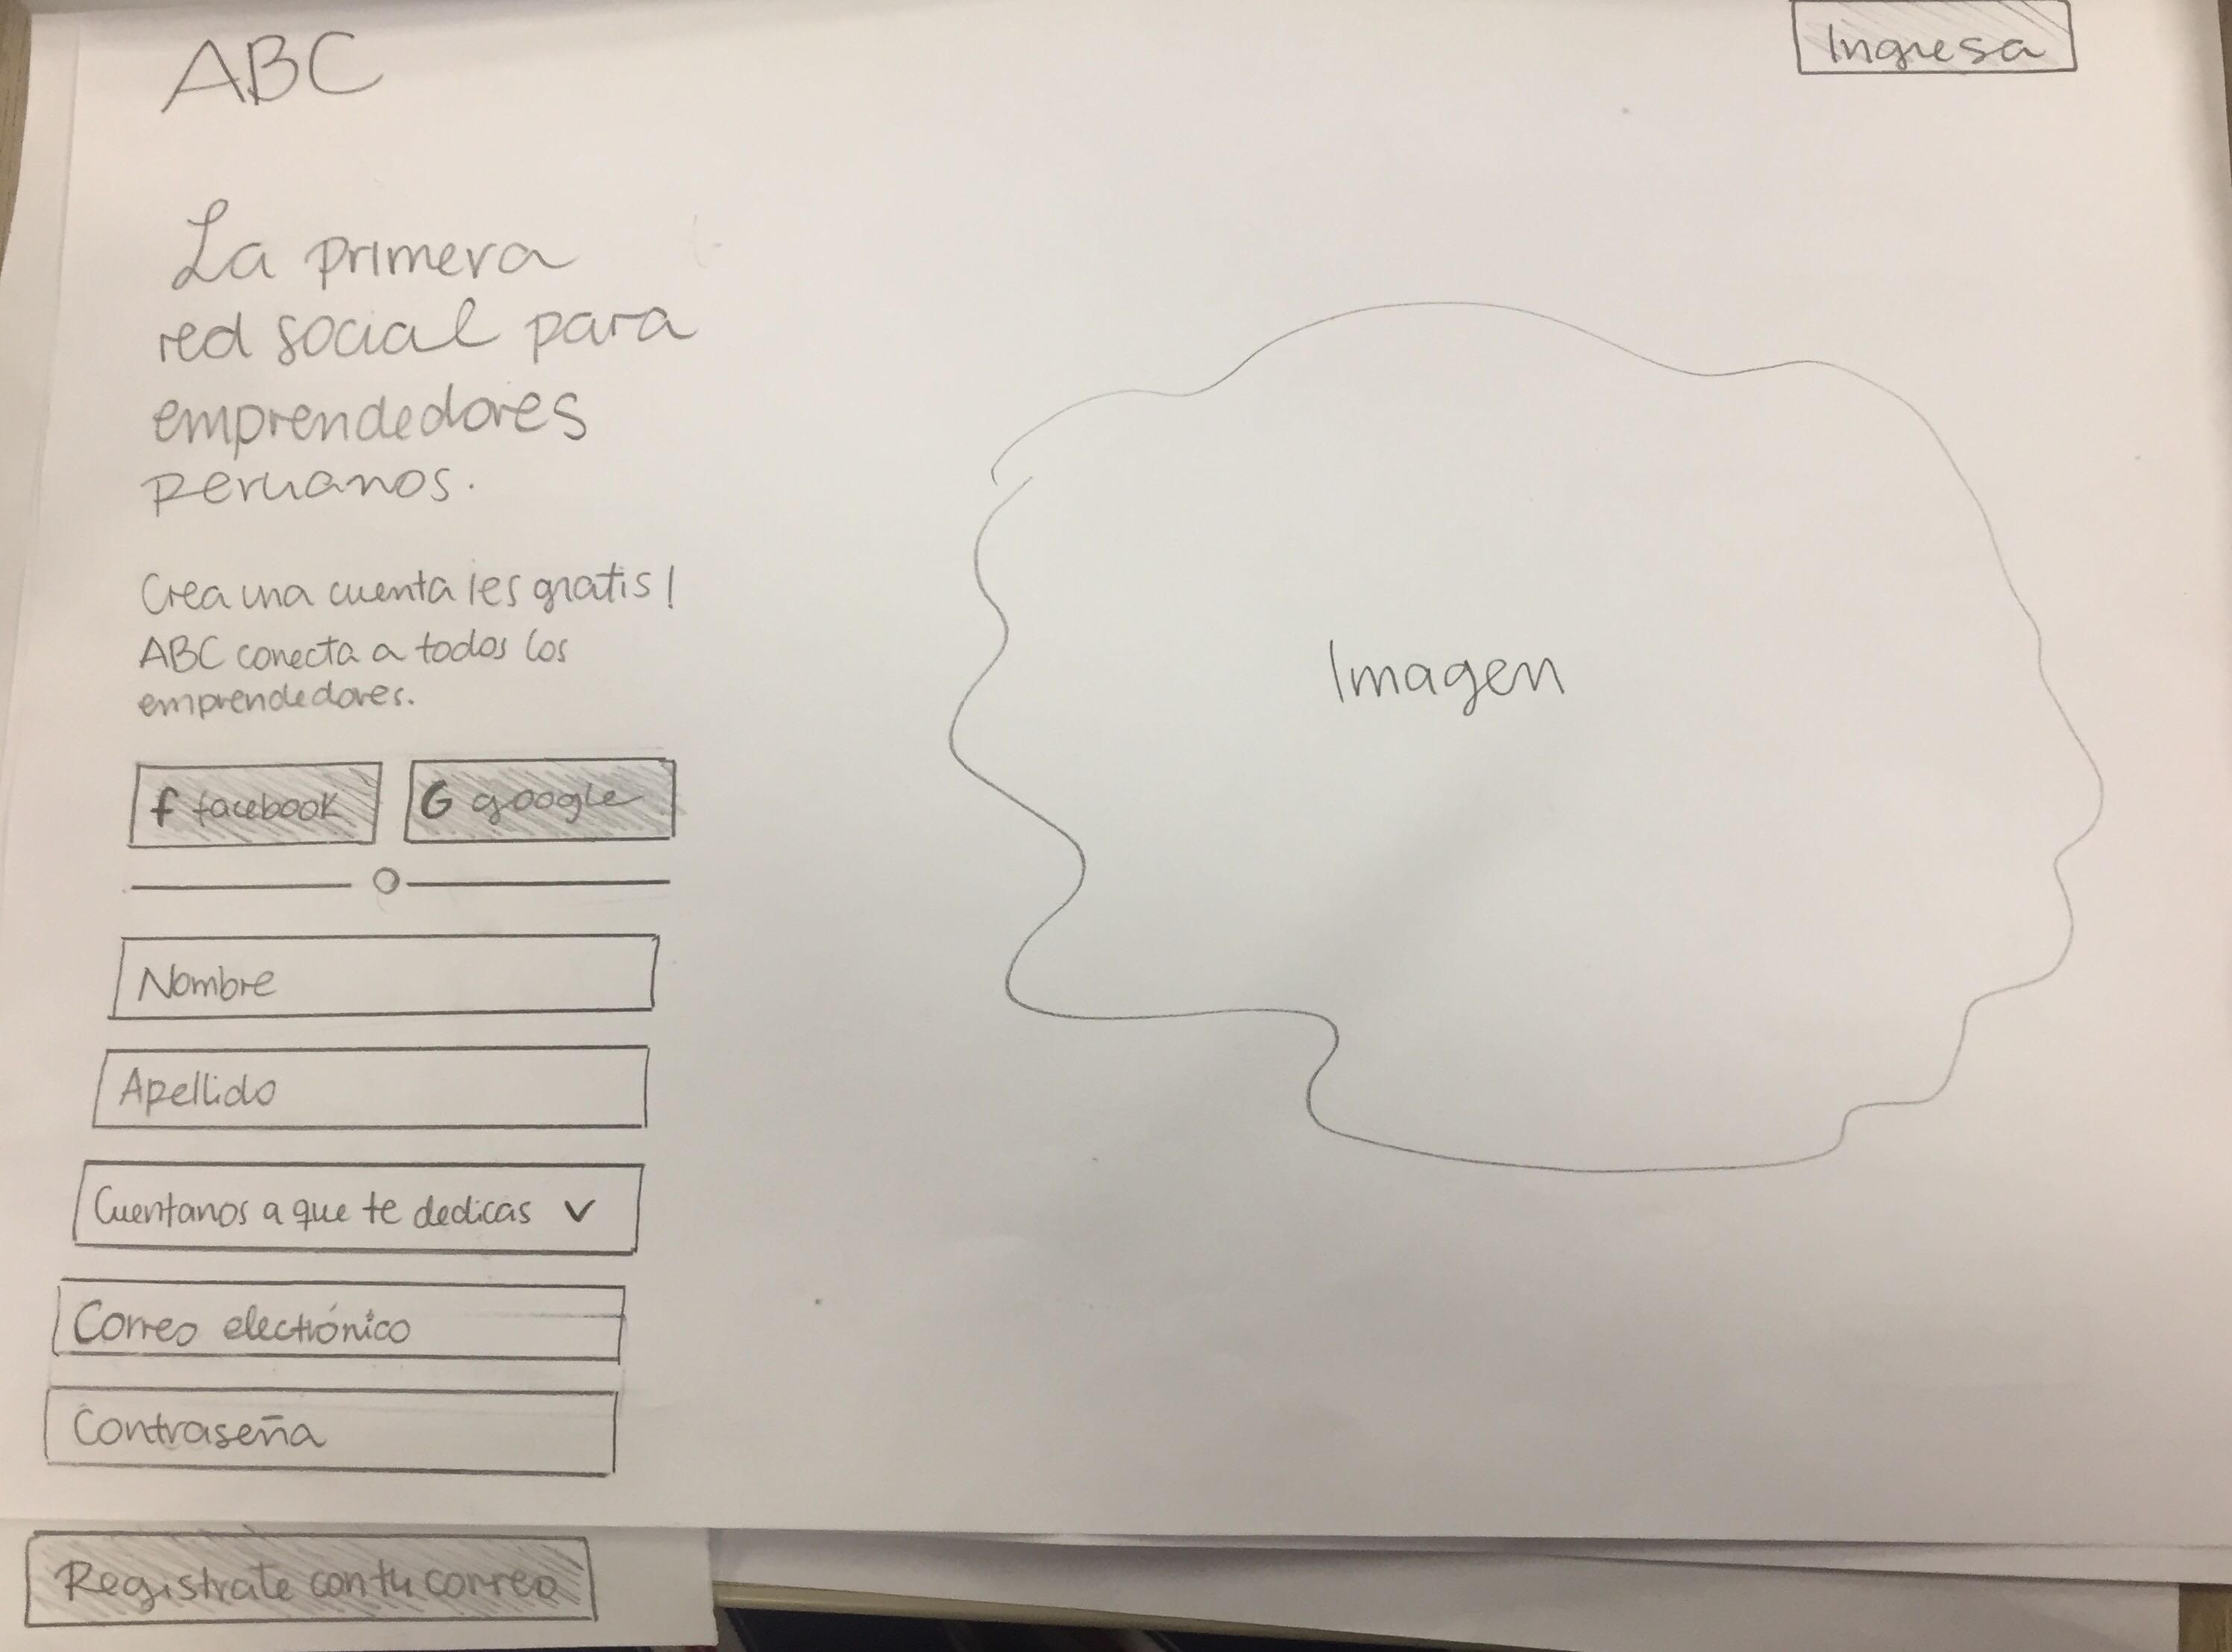 ABC
Ingresa
La primera
red social para
emprendedores
peruanos.
Crea una cuenta ¡es gratis!
ABC conecta a todos los
emprendedores.
f facebook
G google
O
Nombre
Apellido
Cuentanos a que te dedicas
Correo electrónico
Contraseña
Registrate con tu correo
Imagen